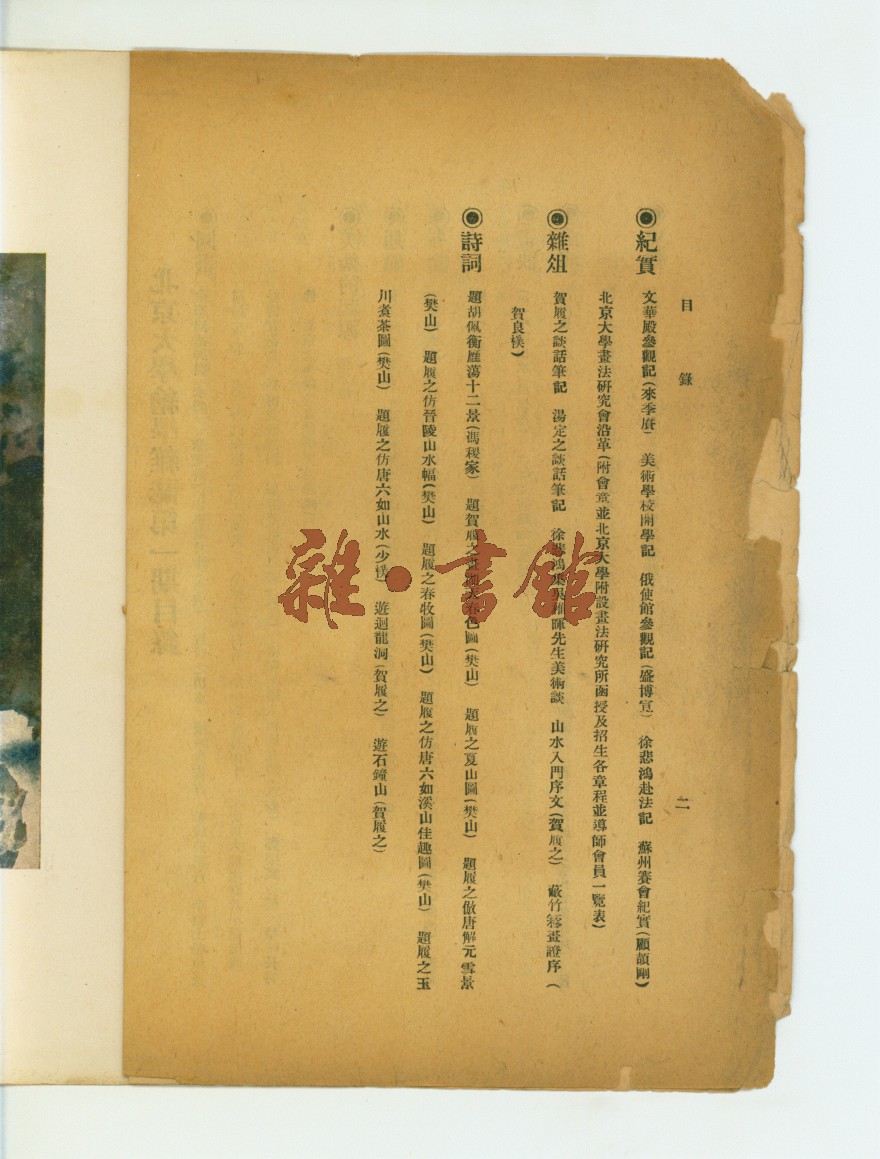 目錄 二
◉紀實 文華殿參觀記(來季庹) 美術學校開學記 俄使館參觀記(盛博宣) 徐悲鴻赴法記 蘇州賽會紀實(顧頡剛)
北京大學畫法研究會沿革(附會章並北京大學附設畫法研究所函授及招生各章程並導師會員一覽表)
◉雜俎 賀履之談話筆記 湯定之談話筆記 徐悲鴻 先生美術談 山水入門序文(賀履之) 蔽竹 畫證序(
賀良樸)
◉詩詞 題胡佩衡雁蕩十二景(馮稷家) 題賀履之 春色圖(樊山) 題履之夏山圖(樊山) 題履之倣唐解元雪景
(樊山) 題履之仿晉陵山水幅(樊山) 題履之春牧圖(樊山) 題履之仿唐六如溪山佳趣圖(樊山) 題履之玉
川煮茶圖(樊山) 題履之仿唐六如山水(少樸) 遊迴龍洞(賀履之) 遊石鐘山(賀履之)
雜·書館